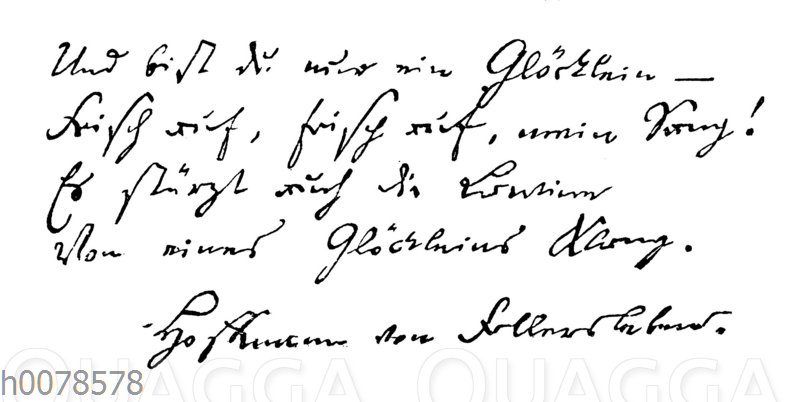 Und bist du nur ein Glöcklein —
Frisch auf, frisch auf, mein Sang!
Es stürzt auch die Lawine
Von eines Glöckleins Klang.
Hoffmann von Fallersleben.
h0078578
QUAGGA QUAGGA